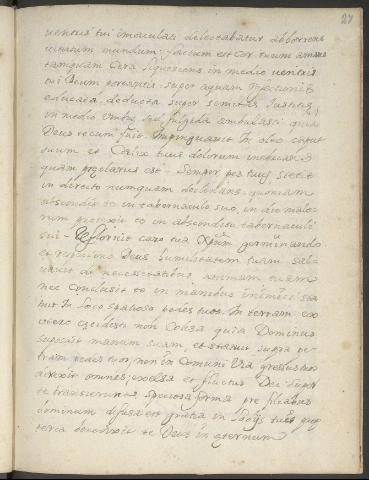 27
ventris tui imaculati delectabatur abborrens
mundum factum est Cor tuum
tamquam Cera liquescens in medio ventris
tui super aquam refectionis
educata, deducta super semitas Justitiae
in medio Umbrae ambulasti quia
Deus tecum fuit. Impinguavit In oleo caput
tuum et Calix tuus
quam preclarus est. Semper pes tuus stetit
in directo numquam declinans, quoniam
abscondit te in tabernaculo suo, in die malo-
rum protexit te in abscondito tabernaculi
sui. Refloruit caro tua Xpum germinando
et Deus humilitatem tuam sal-
vavit de necessitatibus animam tuam
nec conclusit te in manibus inimici sta-
tuit In loco spatioso pedes tuos. In terram ex
utero cecidisti non Colisa quia Dominus
suposuit manum suam et statuit supra pe-
tram pedes tuos, non in Comuni Via gressus tuos
direxit omnes; excelsa et fluctus Dei super
te transierunt, speciosa forma pre filiabus
hominum difusa est gratia in labijs tuis prop-
terea benedixit te Deus in eternum